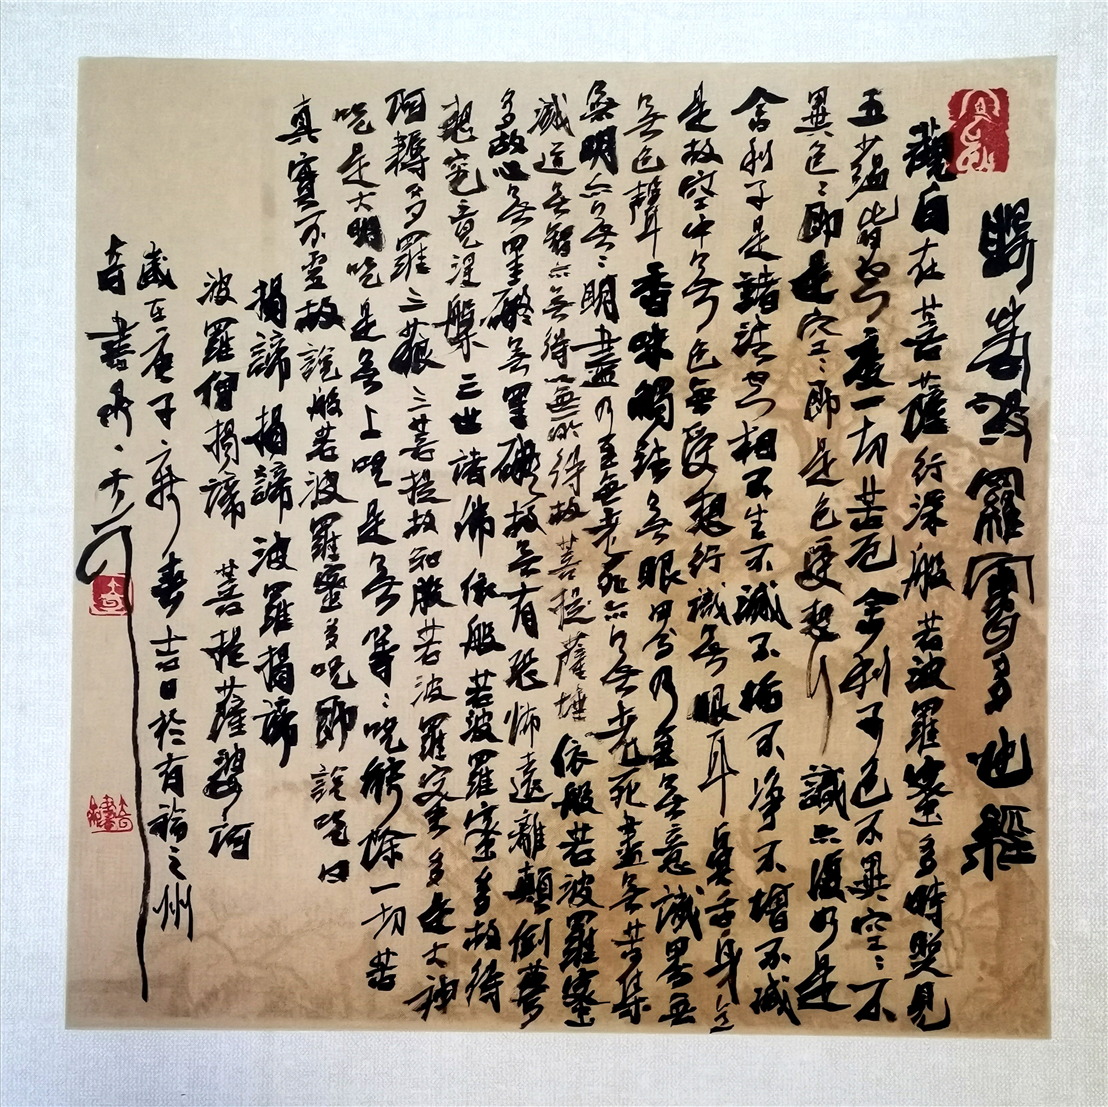 般若波羅蜜多心經
觀自在菩薩行深般若波羅蜜多時照見
五蘊皆空度一切苦厄舍利子色不異空〻不
異色〻即是空〻即是色受想行識亦復如是
舍利子是諸法空相不生不滅不垢不淨不增不減
是故空中無色無受想行識無眼耳鼻舌身意
無色聲香味觸法無眼界乃至無意識界無
無明亦無無明盡乃至無老死亦無老死盡無苦集
滅道無智亦無得無所得故菩提薩埵依般若波羅蜜
多故心無罣礙無罣礙故無有恐怖遠離顛倒夢
想究竟涅槃三世諸佛依般若波羅蜜多故得
阿耨多羅三藐三菩提故知般若波羅蜜多是大神
咒是大明咒是無上咒是無等〻咒能除一切苦
真實不虛故說般若波羅蜜多咒即說咒曰
揭諦揭諦波羅揭諦
波羅僧揭諦菩提薩婆訶
歲在庚子春吉日於有福之州
奇書